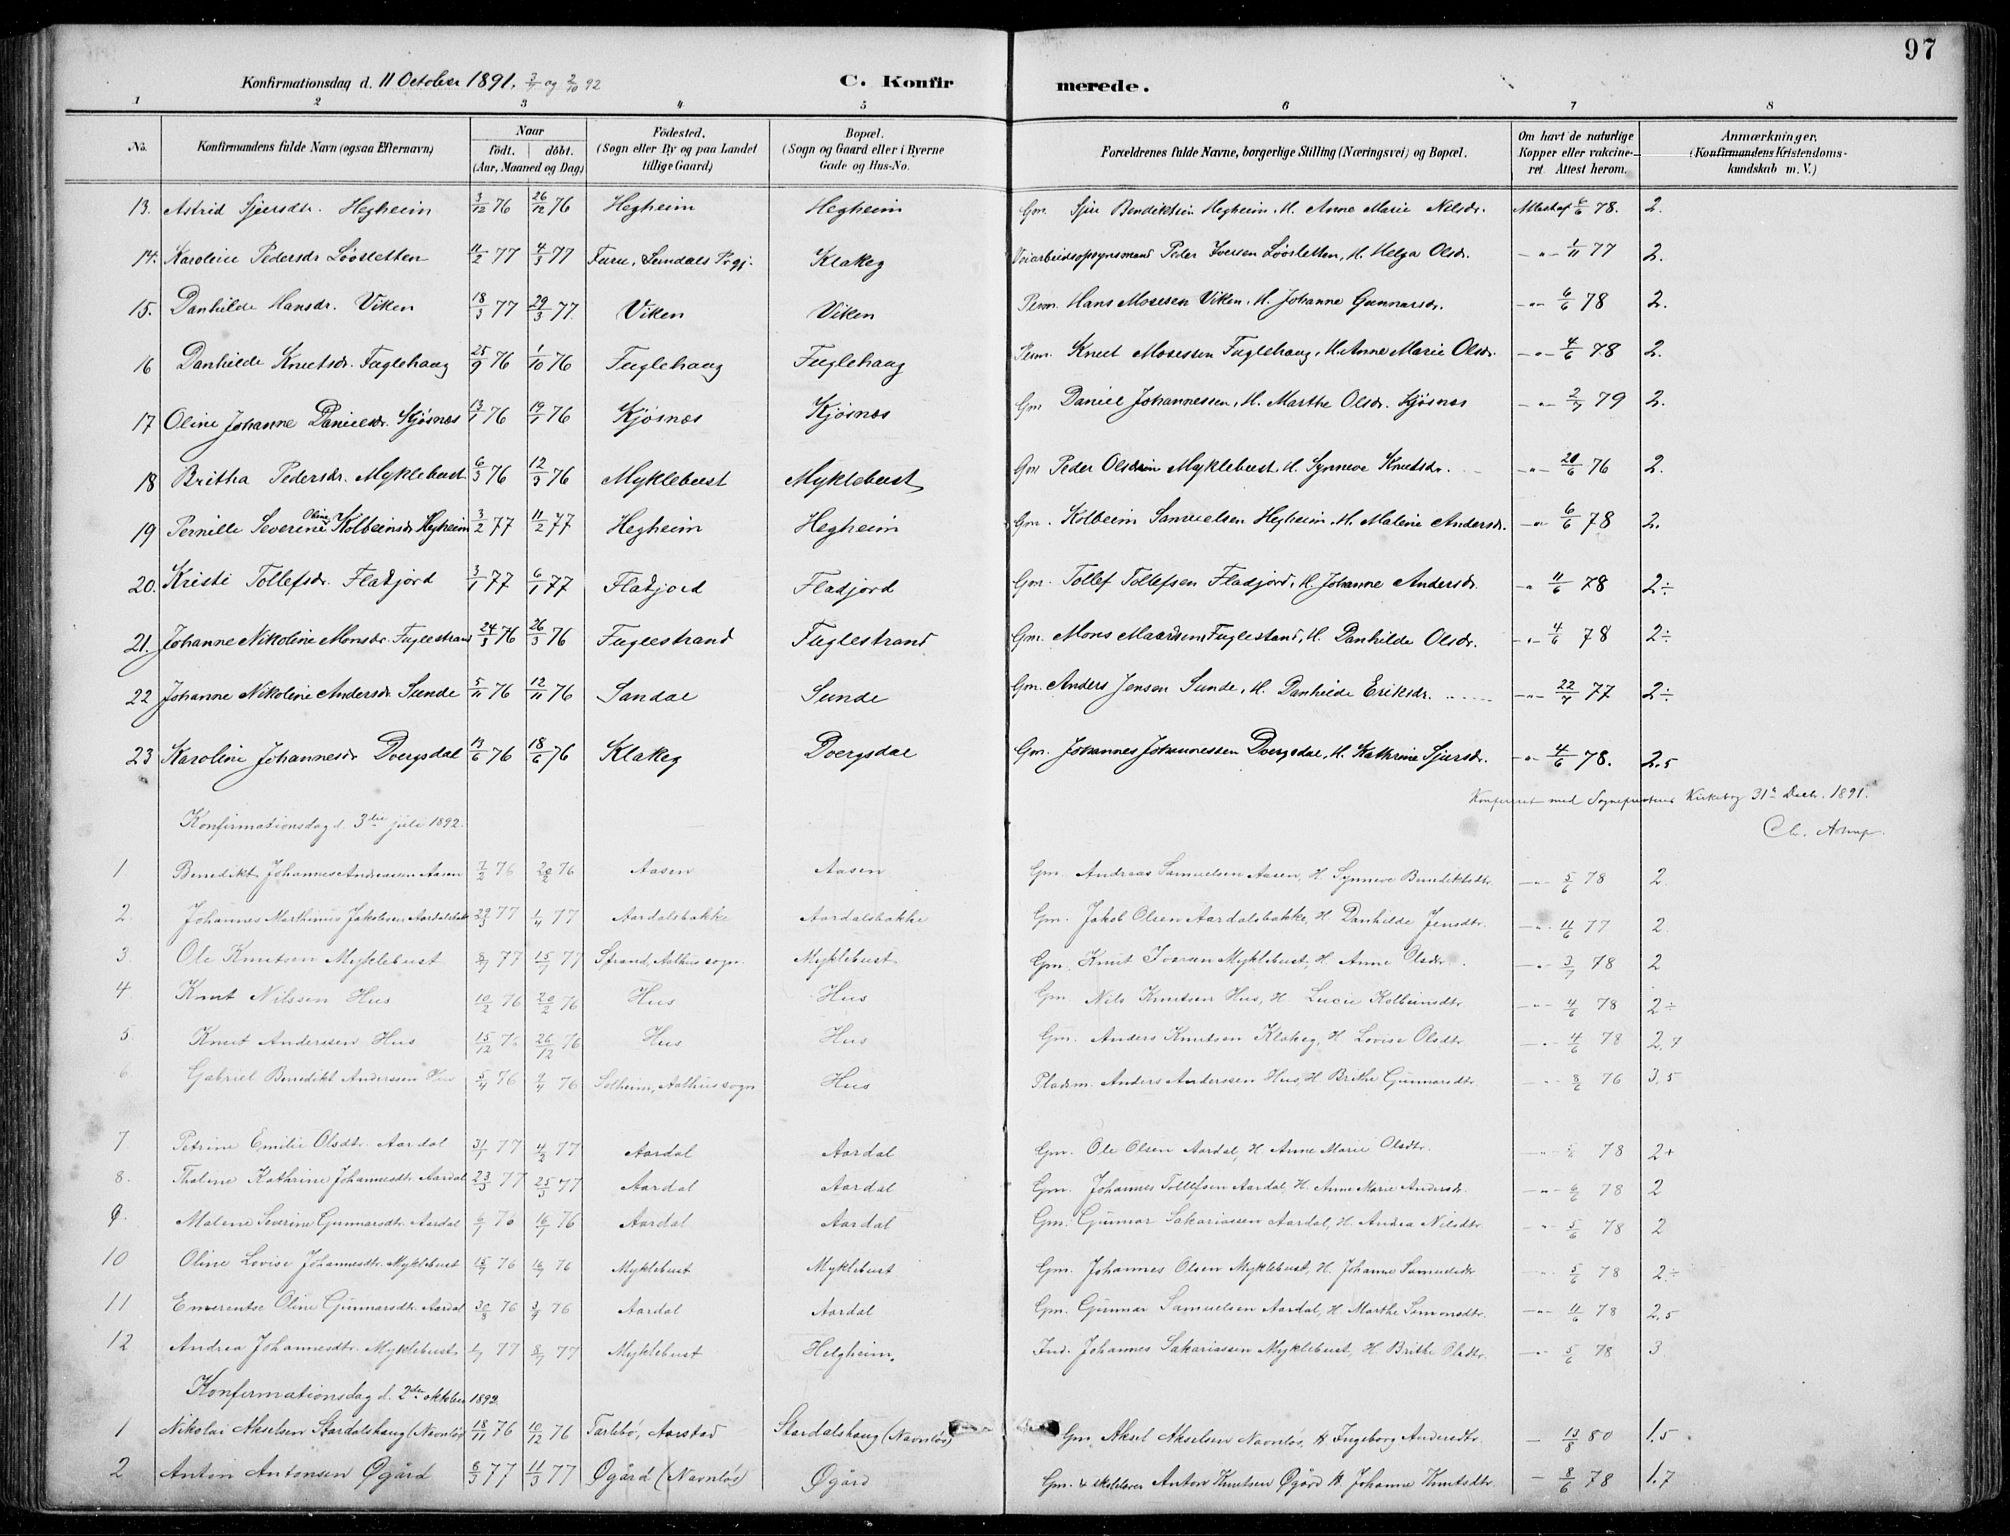 97
Konfirmationsdag d. 11 October 1891. 3/7 og 2/10 92 C. Konfirmerede.
1 2 3 4 5 6 7 8
No. Konfirmandens fulde Navn (ogsaa Efternavn) Naar födt. döbt. (Aar, Maaned og Dag) Födested. (Sogn eller By og paa Landet tillige Gaard) Bopæl. (Sogn og Gaard eller i Byerne Gade og Hus-No. Forældrenes fulde Navne, borgerlige Stilling (Næringsvei) og Bopæl. Om havt de naturlige Kopper eller vakcineret. Attest herom. Anmærkninger. (Konfirmandens Kristendomskundskab m. V.)
13. Astrid Sjursdr. Hegheim 3/12 76 26/12 76 Hegheim Hegheim Gm. Sjur Bendiktsen Hegheim, H. Anne Marie Nilsdr. Attest af 6/6 78. 2.
14. Karoline Pedersdr Løvsletten 11/2 77 4/3 77 Furu, Klakeg Veiarbeidsopsynsmand Peder Iversen Løvsletten, H. Helga Olsdr. — " — 1/11 77 2.
15. Danhilde Hansdr. Viken 18/3 77 29/3 77. Viken Viken Hans Mosesen Viken, H. Johanne Gunnarsdr. — " — 6/6 78 2.
16 Danhilde Knutsdr. Fuglehaug 25/9 76 1/10 76 Fuglehaug Fuglehaug Knut Mosessen Fuglehaug, H. Anne Marie Olsdr. — " — 4/6 78 2.
17 Oline Johanne Danielsdr. Kjøsnæs 13/1 76 19/1 76 Kjøsnæs Kjøsnæs Gm Daniel Johannessen, H. Marthe Olsdr. Kjøsnæs — " — 2/7 79 2.
18 Britha Pedersdr. Myklebust 6/3 76 12/3 76 Myklebust Myklebust Gm Peder Myklebust, H. Synneve Knutsdr. — " — 20/6 76 2.
19 Pernille Severine Oline Kolbeinsdr Hegheim 3/2 77 11/2 77 Hegheim Hegheim Gm. Kolbein Samuelsen Hegheim, H. Malene Andersdr. — " — 6/6 78 2.
20. Kristi Tollefsdr. Fladjord 3/1 77 6/1 77 Fladjord Fladjord Gm. Tollef Tollefsen Fladjord, H. Johanne Andersdr. — " — 11/6 78 2÷
21. Johanne Nikoline Monsdr. Fuglestrand 24/3 76 26/3 76 Fuglestrand Fuglestrand Gm. Mons Fuglestand, H. Danhilde Olsdr. — " — 4/6 78 2÷
22 Johanne Nikoline Andersdr Sunde 5/11 76 12/11 76 Sandal Sunde Gm. Anders Jensen Sunde, H. Danhilde Eriksdr. — " — 22/7 77 2÷
23 Karoline Johannesdr Dvergsdal 6 76 18/6 76 Klakeg Dvergsdal Gm. Johannes Johannessen Dvergsdal, H. Kathrine Sjursdr. — " — 4/6 78. 2.5
Konfereret med Sogneprestens Kirkebog 31te Decb. 1891.
Konfirmationsdag d. 3die juli 1892.
Ch. Astrup
1 Benedikt Johannes Andreassen Aasen 7/2 76 20/2 76 Aasen Aasen Gm. Andreas Samuelsen Aasen, H. Synneve Bendiktsdtr. — " — 5/6 78 2.
2. Johannes Marthinus Jakobsen Aardalsbakke 29/3 77 1/4 77 Aardalsbakke Aardalsbakke Gm. Jakob Olsen Aardalsbakke, H. Danhilde Jensdtr. — " — 11/6 77 2.
3. Ole Knutsen Myklebust 8/7 77 15/7 77 Strand, Aalhus sogn. Myklebust Gm. Knut Iversen Myklebust, H. Anne Olsdtr. — " — 3/7 78 2
4 Knut Nilssen Hus 10/2 76 20/2 76 Hus Hus Gm Nils Knutsen Hus, H. Lucie Kolbeinsdtr. — " — 4/6 78 2÷
5 Knut Anderssen Hus 15/12 76 26/12 76 Hus Hus Gm. Anders Knutsen Klakeg, H Lovise Olsdtr. — " — 4/6 78 2.7
6 Gabriel Benedikt Anderssen Hus 5/4 76 9/4 76 Solheim, Aalhus sogn Hus Pladsm. Anders Anderssen Hus, H. Brithe Gunnarsdtr. — " — 8/6 76 3.5
7 Petrine Emilie Olsdtr. Aardal 31/1 77 4/2 77 Aardal Aardal Gm. Ole Olsen Aardal, H Anne Marie Olsdtr. — " — 5/6 78 2+
8. Thaline Kathrine Johannesdtr. Aardal 23/3 77 25/3 77 Aardal Aardal Gm. Johannes Tollefsen Aardal, H. Anne Marie Andersdr. — " — 6/6 78 2
9. Malene Severine Gunnarsdtr. Aardal 6/7 76 16/7 76 Aardal Aardal Gm. Gunnar Sakariassen Aardal, H. Andrea Nilsdtr. — " — 5/6 78 2
10 Oline Lovise Johannesdtr. Myklebust 15/7 76 16/7 76 Myklebust Myklebust Gm. Johannes Olsen Myklebust, H. Johanne Samuelsdtr — " — 5/6 78 2÷
11 Emerentse Oline Gunnarsdtr. Aardal 30/8 76 3/9 76 Aardal Aardal Gm. Gunnar Samuelsen Aardal, H. Marthe Simonsdtr. — " — 11/6 78 2.5
12 Andrea Johannesdtr. Myklebust 1/7 77 8/7 77 Myklebust Helgheim. Ind. Johannes Sakariassen Myklebust, H. Brithe Olsdtr. — " — 5/6 78 3
Konfirmationsdag d. 2den oktober 1892
1 Nikolai Akselsen Stardalshaug (Navnløs) 18/11 76 10/12 76 Tarlebø, Aarstad Stardalshaug (Navnløs) Gm. Aksel Akselsen Navnløs, H Ingeborg Andersdtr. — 13/8 80 1.5
2 Anton Antonsen Øgård 8/3 77 11/3 77 Øgård (Navnløs) Øgård Gm. & skolelærer Anton Knutsen Øgård H. Johanne Knutsdtr. — 8/6 78 1.7